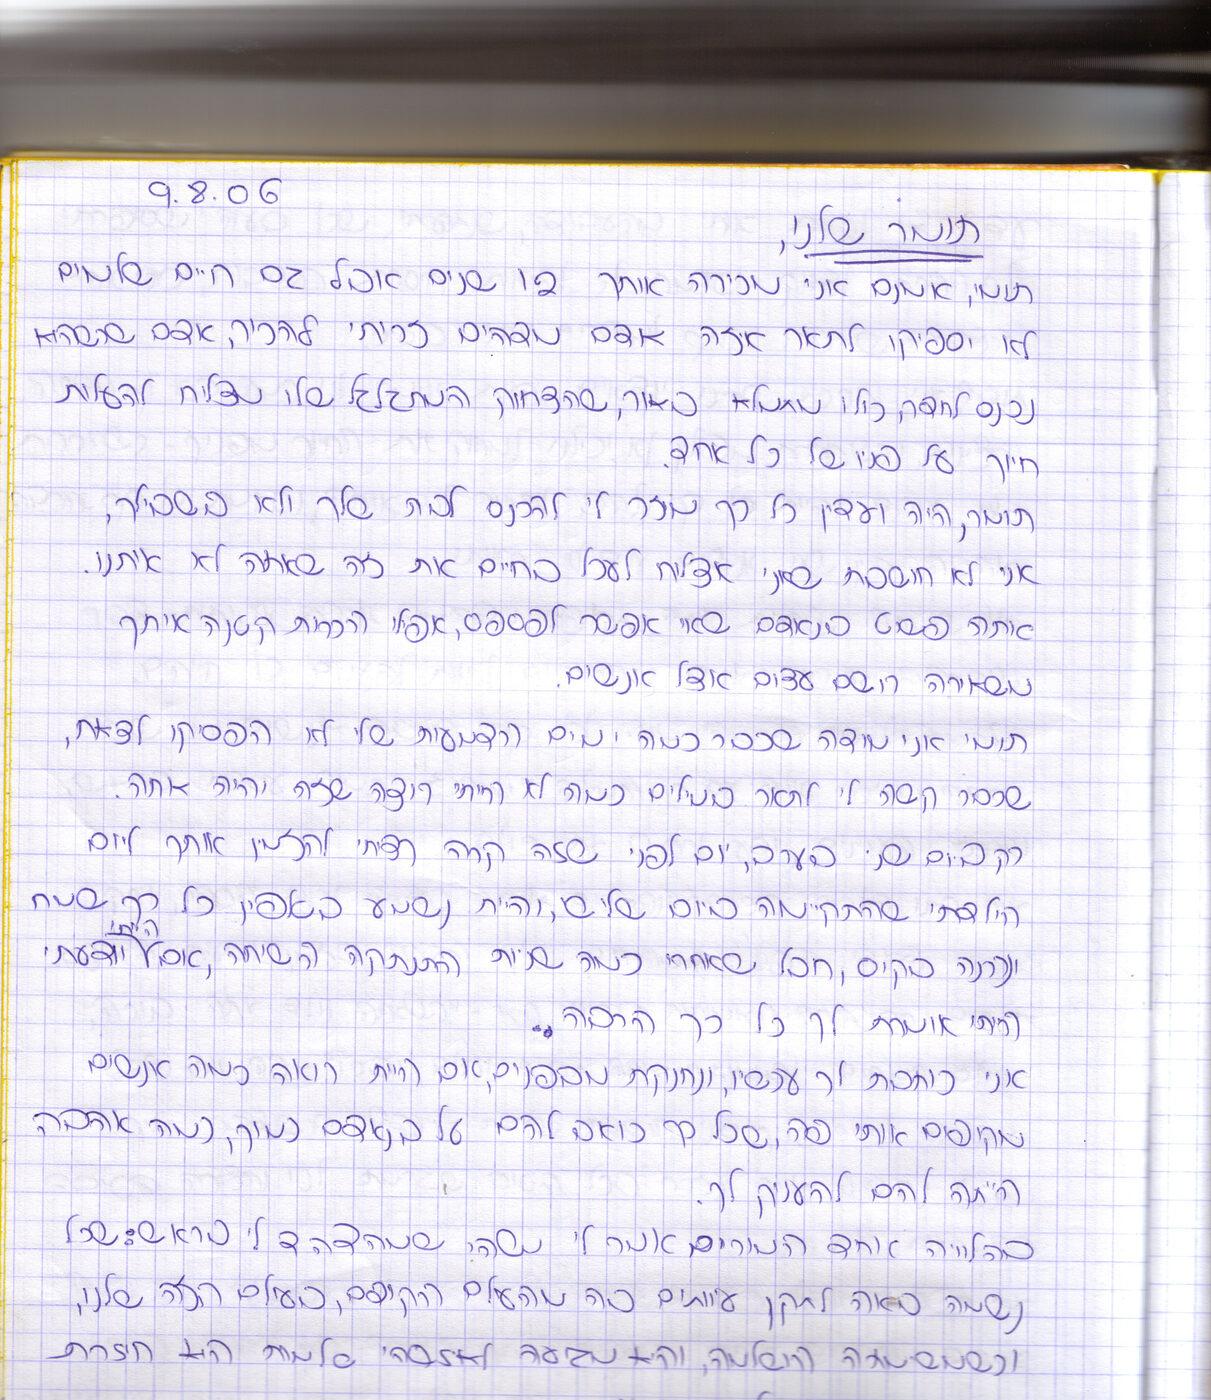 9.8.06
תומר שלנו,
תומי, אמנם אני מכירה אותך רק 4 שנים אבל גם חיים שלמים
לא יספיקו לתאר איזה אדם מדהים זכיתי להכיר, אדם שכשהוא
נכנס לחדר, כולו מתמלא באור, שהצחוק המתגלגל שלו מצליח להעלות
חיוך על פניו של כל אחד.
תומר, היה ועדין כל כך מוזר לי להכנס לבית שלך ולא בשבילך,
אני לא חושבת שאני אצליח לעכל בחיים את זה שאתה לא איתנו.
אתה פשוט בנאדם שאי אפשר לפספס, אפילו הכרות קטנה איתך
משאירה רושם עצום אצל אנשים.
תומי אני מודה שכבר כמה ימים הדמעות שלי לא הפסיקו לצאת,
שכבר קשה לי לתאר במילים כמה לא הייתי רוצה שזה יהיה אתה.
רק ביום שני בערב, יום לפני שזה קרה רציתי להזמין אותך ליום
הילדתי שהתקיימה ביום שלישי, והיית נשמע באפיין כל כך שמח
ונהנה בקיום, חבל שאחרי כמה שניות התנתקה השיחה, אם הייתי יודעתי
הייתי אומרת לך כל כך הרבה..
אני כותבת לך עכשיו, ונחנקת מבפנים, אם היית רואה כמה אנשים
מקיפים אותי פה, שכל כך כואב להם על בנאדם כמוך, כמה אהבה
הייתה להם להעניק לך.
בהלוייה אחד המורים אמר לי משהו שמהדהד לי בראש: שכל
נשמה באה לתקן עיוותים פה מהעולם הקודם, בעולם הזה שלנו,
וכשמשימתה הושלמה, והיא מגיעה לאיזשהי שלמות היא חוזרת